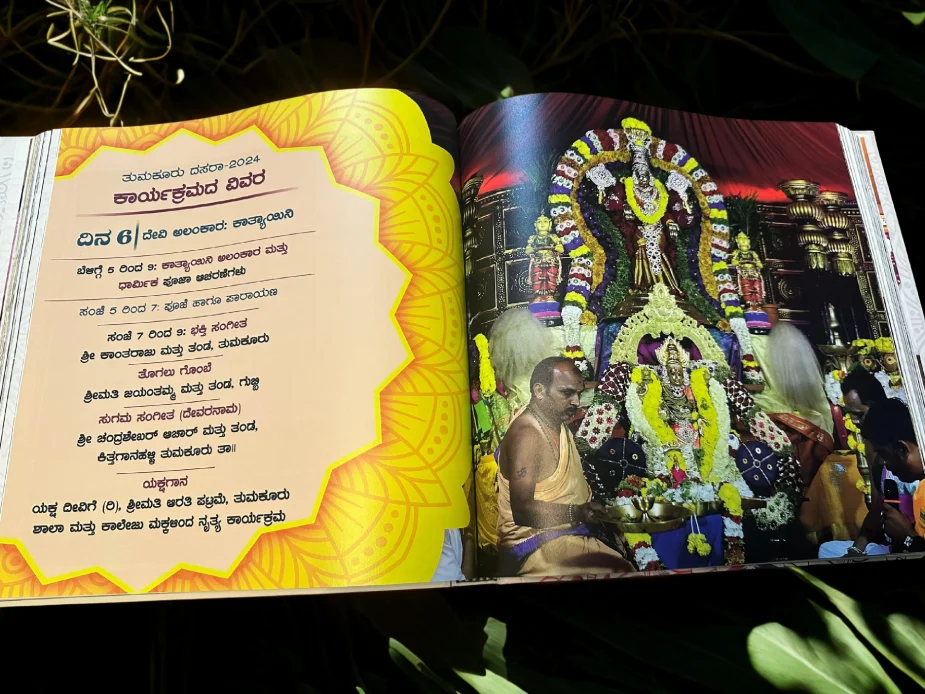 ತುಮಕೂರು ದಸರಾ-2024
ಕಾರ್ಯಕ್ರಮದ ವಿವರ
ದಿನ 6 | ದೇವಿ ಅಲಂಕಾರ: ಕಾತ್ಯಾಯಿನಿ
ಬೆಳಿಗ್ಗೆ 5 ರಿಂದ 9: ಕಾತ್ಯಾಯಿನಿ ಅಲಂಕಾರ ಮತ್ತು
ಧಾರ್ಮಿಕ ಪೂಜಾ ಆಚರಣೆಗಳು
ಸಂಜೆ 5 ರಿಂದ 7: ಪೂಜೆ ಹಾಗೂ ಪಾರಾಯಣ
ಸಂಜೆ 7 ರಿಂದ 9: ಭಕ್ತಿ ಸಂಗೀತ
ಶ್ರೀ ಕಾಂತರಾಜು ಮತ್ತು ತಂಡ, ತುಮಕೂರು
ತೊಗಲು ಗೊಂಬೆ
ಶ್ರೀಮತಿ ಜಯಂತಮ್ಮ ಮತ್ತು ತಂಡ, ಗುಬ್ಬಿ
ಸುಗಮ ಸಂಗೀತ (ದೇವರನಾಮ)
ಶ್ರೀ ಚಂದ್ರಶೇಖರ್ ಆಚಾರ್ ಮತ್ತು ತಂಡ,
ಕಿತ್ತಗಾನಹಳ್ಳಿ ತುಮಕೂರು ತಾ॥
ಯಕ್ಷಗಾನ
ಯಕ್ಷ ದೀವಿಗೆ (ರಿ), ಶ್ರೀಮತಿ ಆರತಿ ಪಟ್ರಮೆ, ತುಮಕೂರು
ಶಾಲಾ ಮತ್ತು ಕಾಲೇಜು ಮಕ್ಕಳಿಂದ ನೃತ್ಯ ಕಾರ್ಯಕ್ರಮ